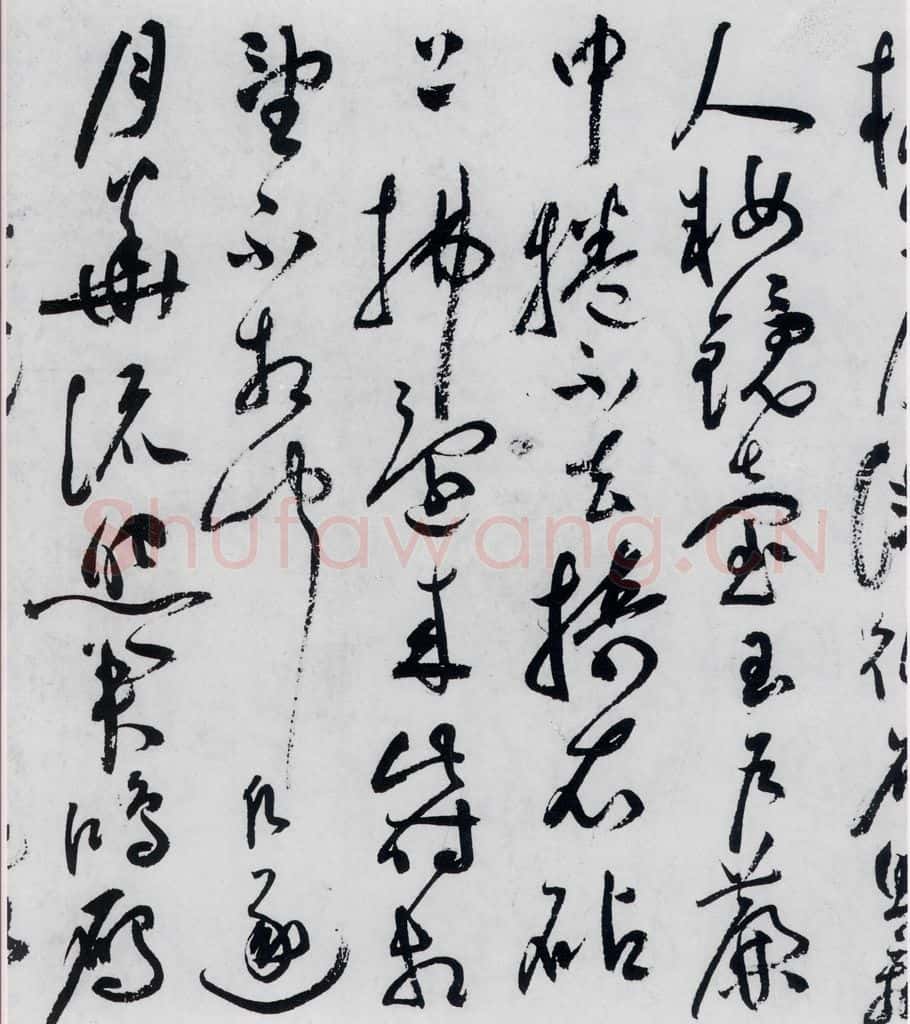 人粧鏡臺玉戶簾
中捲不去擣衣砧
上拂還來此時相
望不相聞願逐
月華流照君鴻雁
Shufawang.CN